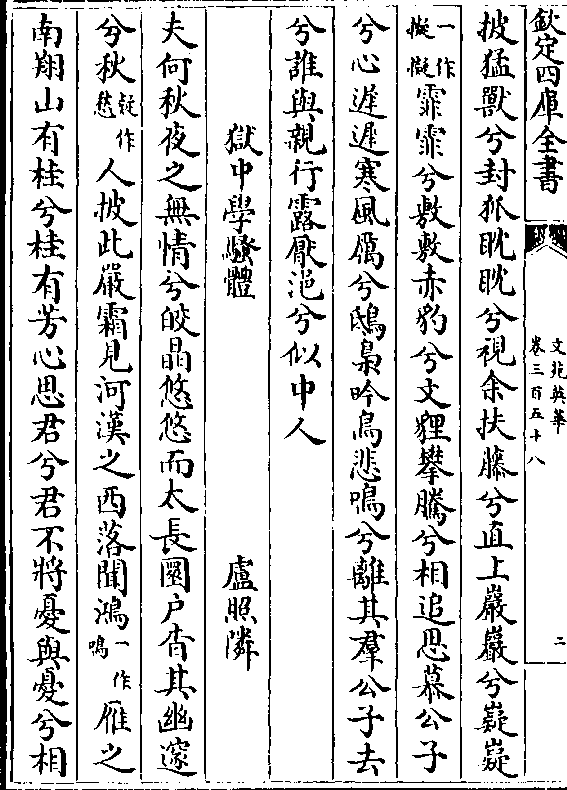 欽定四庫全書
文苑英華
卷三百五十八
二
披猛獸兮封狐眈眈兮視余扶藤兮直上巖巖兮嶷嶷
一作礙礙霏霏兮敷敷赤豹兮文貍攀騰兮相追思慕公子
兮心遲遲寒風厲兮鴟梟吟鳥悲鳴兮離其羣公子去
兮誰與親行露厭浥兮似中人
獄中學騷體
盧照隣
夫何秋夜之無情兮皎晶悠悠而太長圜户杳其幽邃
兮秋疑作愁人披此嚴霜見河漢之西落聞鴻一作鳴雁之
南翔山有桂兮桂有芳心思君兮君不將憂與憂兮相